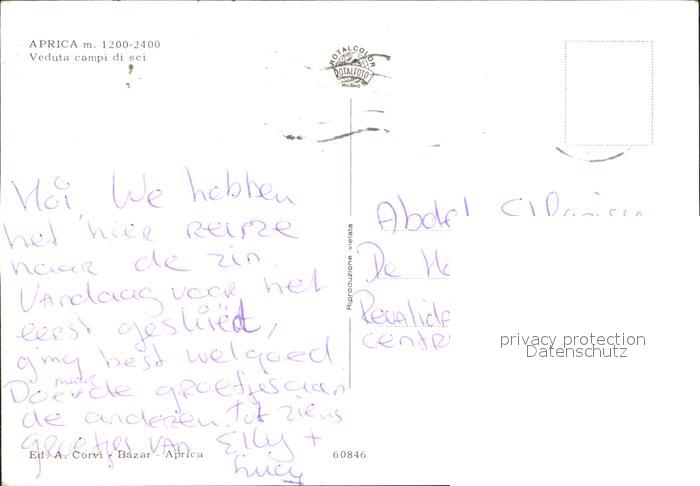 APRICA m. 1200-2400
Veduta campi di sci
ROTALCOLOR
ROTALFOTO
MILANO
Hoi, We hebben
het hier reuze
naar de zin
Vandaag voor het
eerst geskied,
ging best wel goed
Doe maar de groetjes aan
de anderen. Tot ziens
Groetjes van Elly +
Lucy
Ed. A. Corvi - Bazar - Aprica
60846
Riproduzione vietata
Abdel
De
Revalide
centr
privacy protection
Datenschutz